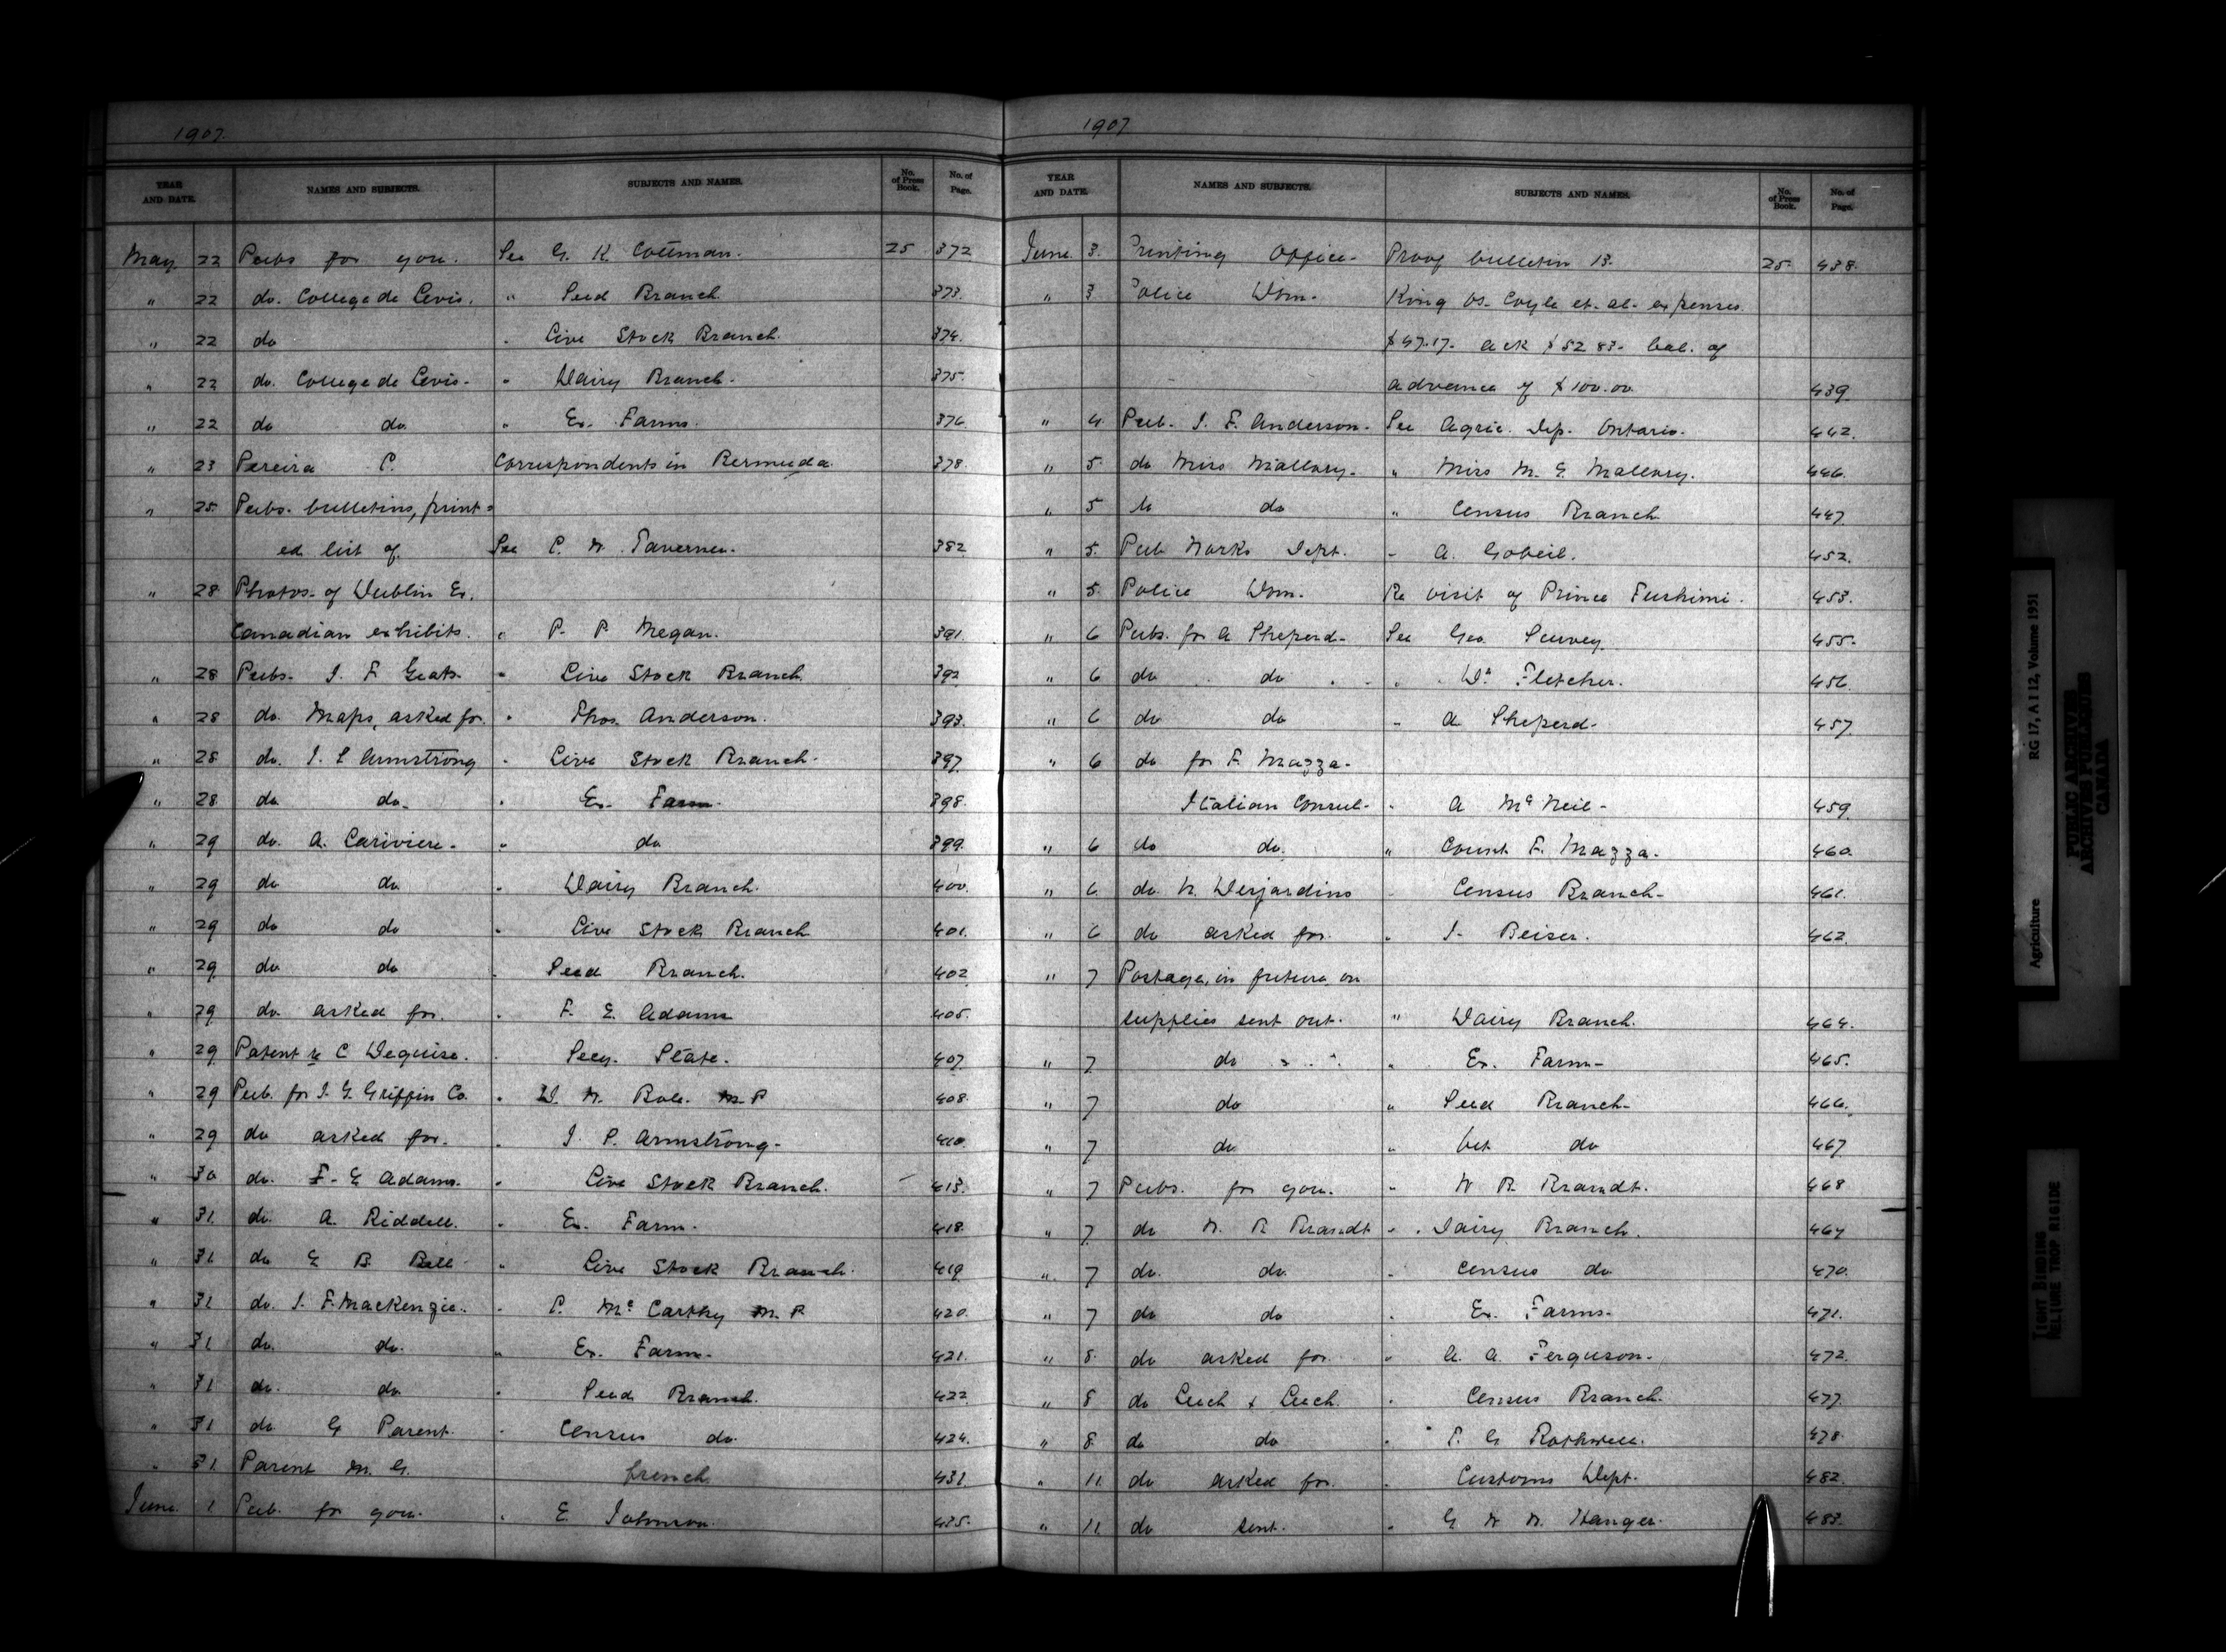 1907.
YEAR AND DATE. NAMES AND SUBJECTS. SUBJECTS AND NAMES. No. of Press Book. No. of Page.
May 22 Pubs for you. See G. K. Cottman. 25 372
" 22 do. College de Levis. " Seed Branch. 373.
" 22 do " Live Stock Branch. 374.
" 22 do. College de Levis. " Dairy Branch. 375.
" 22 do do " Ex. Farms. 376.
" 23 Pereira P. Correspondents in Bermuda. 378.
" 25 Pubs. bulletins, print=
ed list of See P. W. Taverner. 382
" 28 Photos. of Dublin Ex.
Canadian exhibits. " P. P. Megan. 391.
" 28 Pubs. J. F. Geats " Live Stock Branch. 392
" 28 do. Maps, asked for. " Thos. Anderson. 393.
" 28 do. J. L Armstrong " Live Stock Branch. 397.
" 28 do do. " Ex. Farm. 398.
" 29 do. A. Lariviere. " do 399.
" 29 do do " Dairy Branch. 400.
" 29 do do " Live Stock Branch 401.
" 29 do do " Seed Branch. 402
" 29 do asked for. " F. E. Adams 405.
" 29 Patent re C Deguise. " Secy. State. 407.
" 29 Pub. for J. G. Griffin Co. " W. W. Bole. M. P 408.
" 29 do asked for. " J. P. Armstrong. 410.
" 30 do. F. E Adams. " Live Stock Branch. 413.
" 31. do. A. Riddell. " Ex. Farm. 418.
" 31. do G B. Bell " Live Stock Branch. 419
" 31 do. J. F. Mackenzie. " P. McCarthy M. P. 420.
" 31 do. do. " Ex. Farm. 421.
" 31 do. do " Seed Branch. 422
" 31 do G Parent. " Census do. 424.
" 31. Parent M. G. french 431.
June. 1 Pub. for you. " E. Johnson. 435.
1907
YEAR AND DATE. NAMES AND SUBJECTS. SUBJECTS AND NAMES. No. of Press Book. No. of Page.
June. 3. Printing Office. Proof bulletin 13. 25. 438.
" 3 Police Dom. King vs. Coyle et. al. expenses.
$47.17. ack $52 83. bal. of
advance of $100.00 439.
" 4. Pub. J. F. Anderson. See Agric. Dep. Ontario. 442.
" 5. do Miss Mallory. " Miss M. E. Mallory. 446.
" 5 do do " Census Branch 447
" 5. Pub Works Dept. " A. Gobeil. 452.
" 5. Police Dom. Re visit of Prince Fushimi. 453.
" 6 Pubs. for A Sheperd. See Geo Survey. 455.
" 6 do do " Dr Fletcher. 456.
" 6 do do " A Sheperd. 457.
" 6 do for F. Mazza.
Italian Consul. " A McNeil. 459
" 6 do do. " Count F. Mazza. 460.
" 6. do N. Desjardins " Census Branch. 461.
" 6 do asked for. " J. Beiser. 462.
" 7 Postage, in future on
supplies sent out. " Dairy Branch. 464.
" 7 do " Ex. Farm. 465.
" 7 do " Seed Branch. 466.
" 7 do " Vet do 467
" 7 Pubs. for you. " W B. Brandt. 468
" 7. do W. B Brandt " Dairy Branch. 469
" 7 do. do. " Census do 470.
" 7 do do " Ex. Farms. 471.
" 8. do asked for " A. A. Ferguson. 472.
" 8 do Leech & Leech. " Census Branch. 477.
" 8 do do " P. G Rothwell. 478.
" 11. do asked for. " Customs Dept. 482.
" 11. do sent. " G W W. Hanger. 483.
Agriculture RG 17, A I 12, Volume 1951
PUBLIC ARCHIVES
ARCHIVES PUBLIQUES
CANADA
TIGHT BINDING
RELIURE TROP RIGIDE